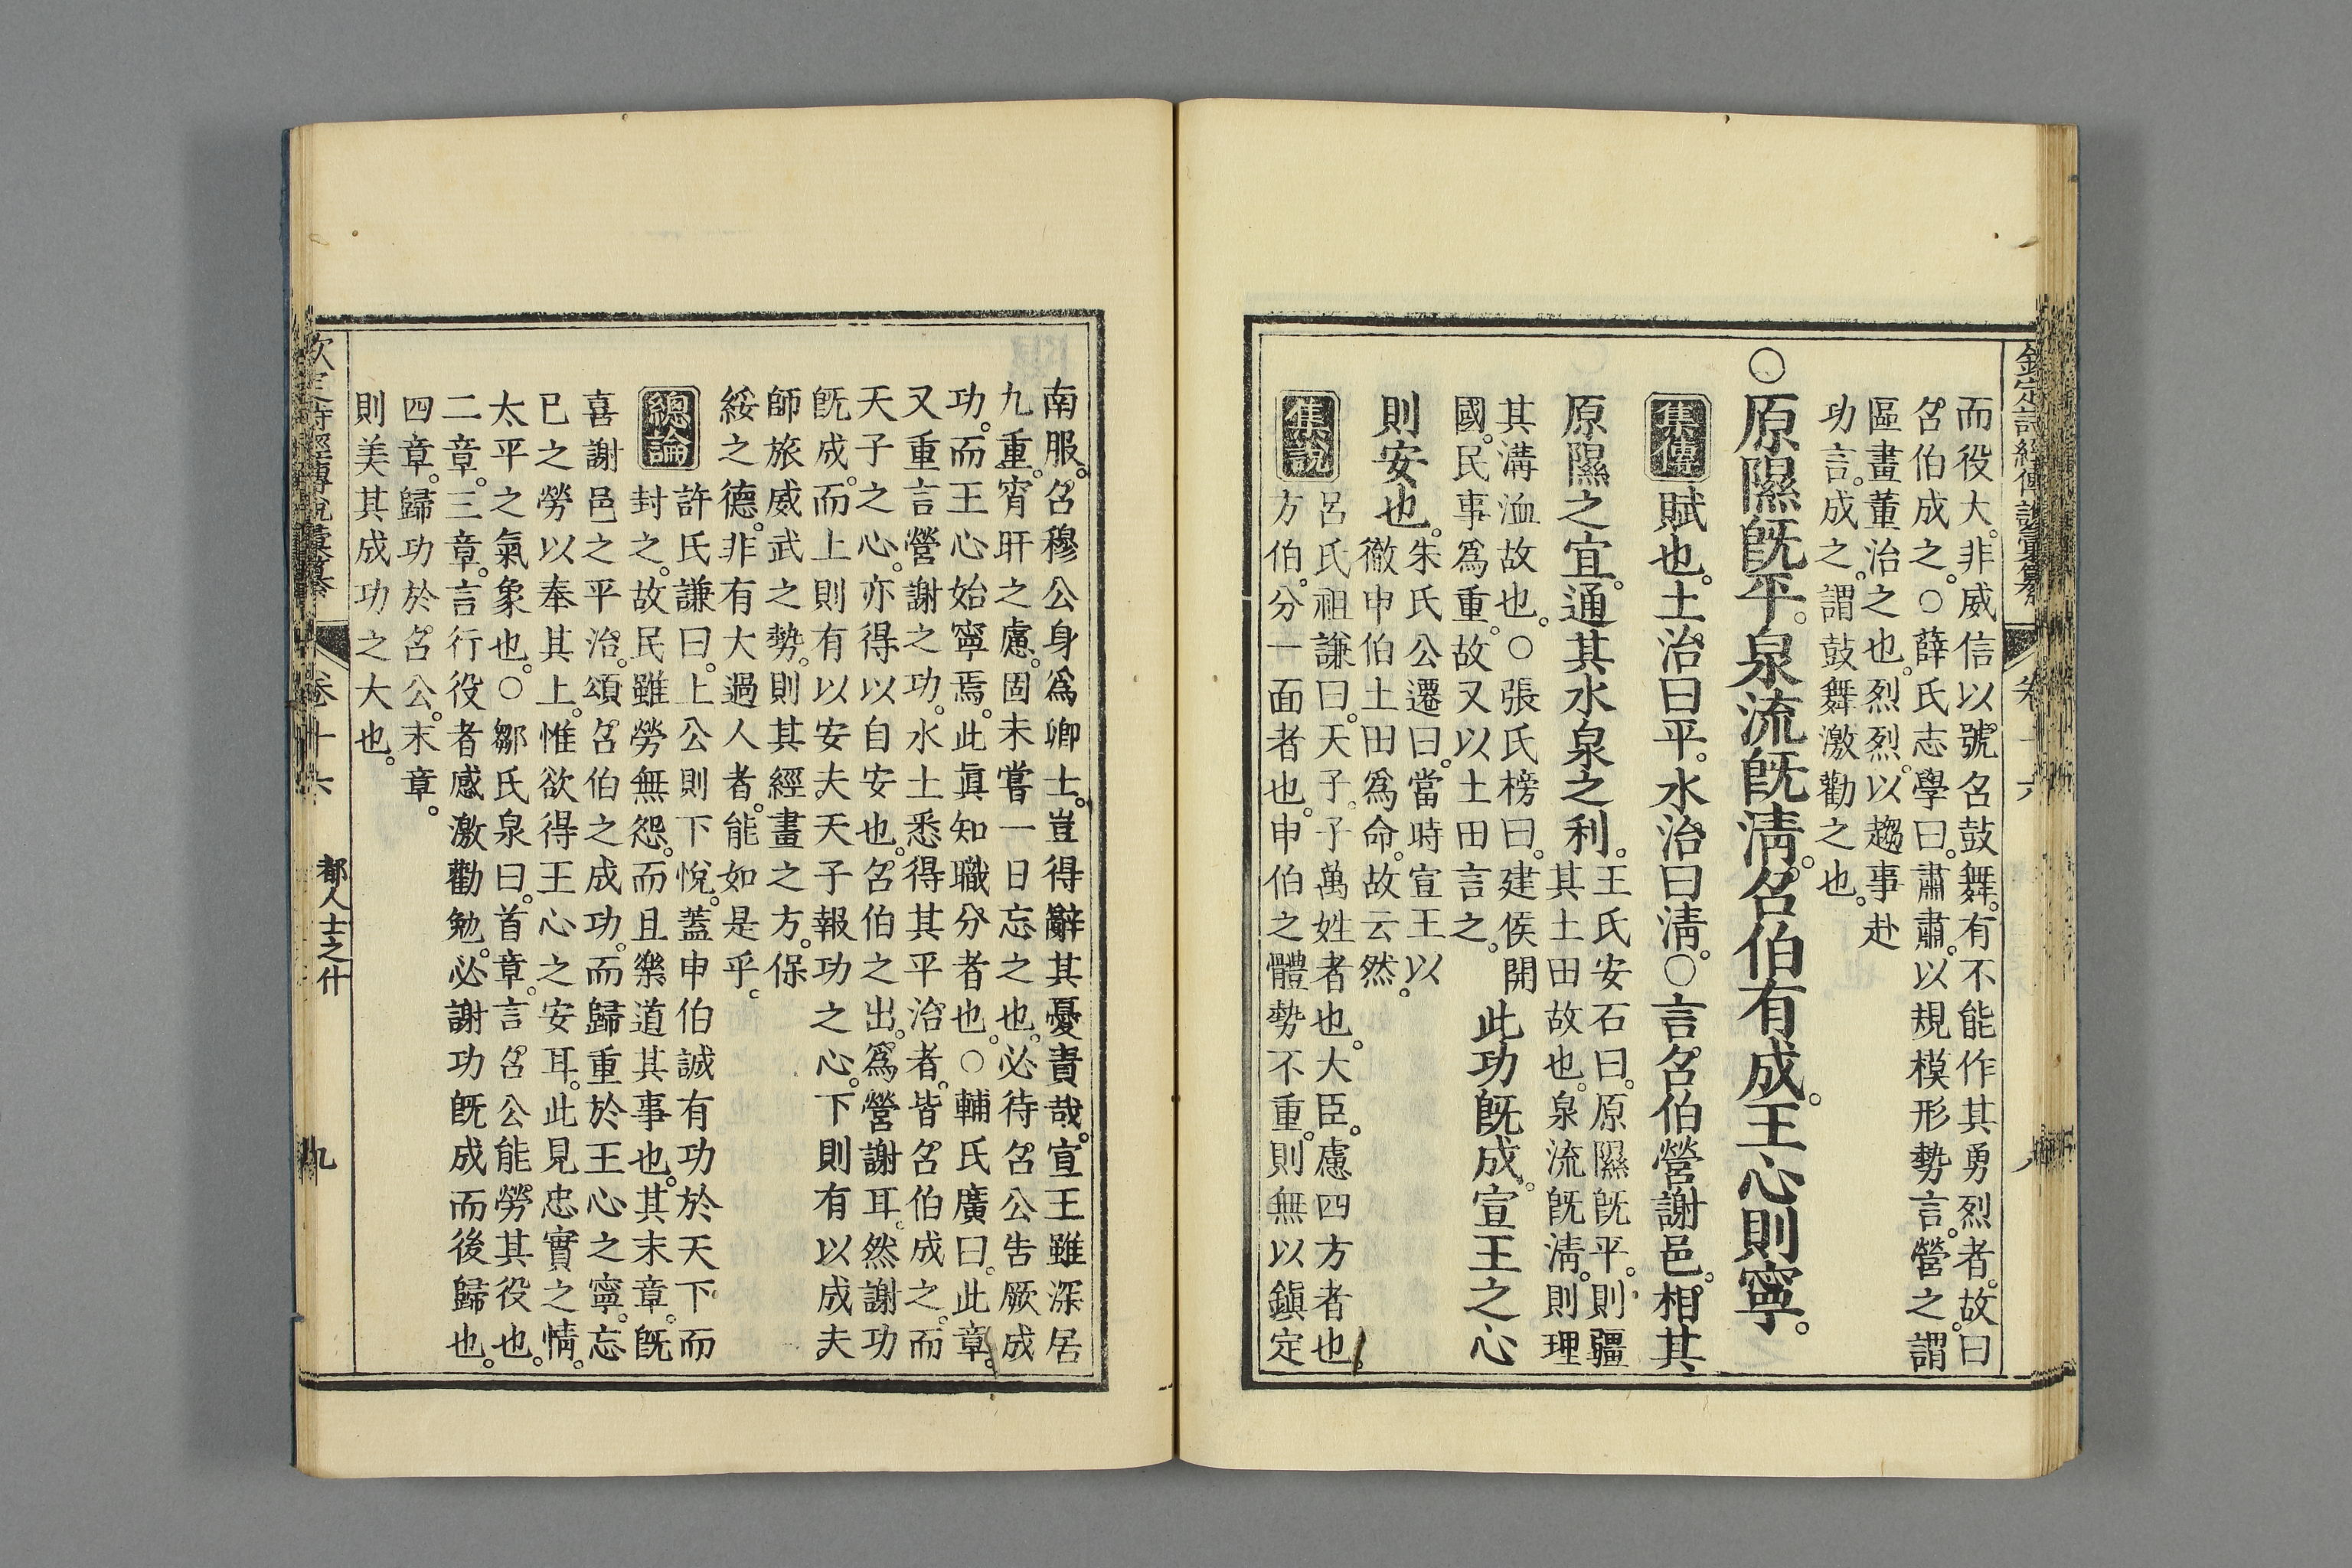 欽定詩經傳說彙纂
卷十六
而役大。非威信以號名鼓舞。有不能作其勇烈者。故曰
召伯成之。○薛氏志學曰。肅肅。以規模形勢言。營之。謂
區畫董治之也。烈烈。以趨事赴
功言。成之。謂鼓舞激勸之也。
○原隰旣平。泉流旣淸。召伯有成。王心則寧。
集傳
賦也。土治曰平。水治曰淸。○言召伯營謝邑。相其
原隰之宜。通其水泉之利。
王氏安石曰。原隰旣平。則疆
其土田故也。泉流旣淸。則理
其溝洫故也。○張氏榜曰。建侯開
國。民事爲重。故又以土田言之。
此功旣成。宣王之心
則安也。
朱氏公遷曰。當時宣王以
徹申伯土田爲命。故云然。
集說
呂氏祖謙曰。天子。子萬姓者也。大臣。慮四方者也。
方伯。分一面者也。申伯之體勢不重。則無以鎭定
南服。召穆公身爲卿士。豈得辭其憂責哉。宣王雖深居
九重。宵旰之慮。固未嘗一日忘之也。必待召公告厥成
功。而王心始寧焉。此眞知職分者也。○輔氏廣曰。此章。
又重言營謝之功。水土悉得其平治者。皆召伯成之。而
天子之心。亦得以自安也。召伯之出。爲營謝耳。然謝功
旣成。而上則有以安夫天子報功之心。下則有以成夫
師旅威武之勢。則其經畫之方。保
綏之德。非有大過人者。能如是乎。
總論
許氏謙曰。上公則下悅。蓋申伯誠有功於天下而
封之。故民雖勞無怨。而且樂道其事也。其末章。旣
喜謝邑之平治。頌召伯之成功。而歸重於王心之寧。忘
已之勞以奉其上。惟欲得王心之安耳。此見忠實之情。
太平之氣象也。○鄒氏泉曰。首章。言召公能勞其役也。
二章。三章。言行役者感激勸勉。必謝功旣成而後歸也。
四章。歸功於召公。末章。
則美其成功之大也。
欽定詩經傳說彙纂
卷十六
都人士之什
九